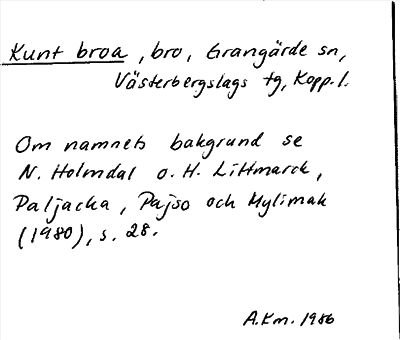 Kunt broa, bro, Grangärde sn,
Västerbergslags tg, Kopp. l.
Om namnets bakgrund se
N. Holmdal o. H. Littmarck,
Paljacka, Pajso och Mylimak
(1980), s. 28.
A.Km. 1986